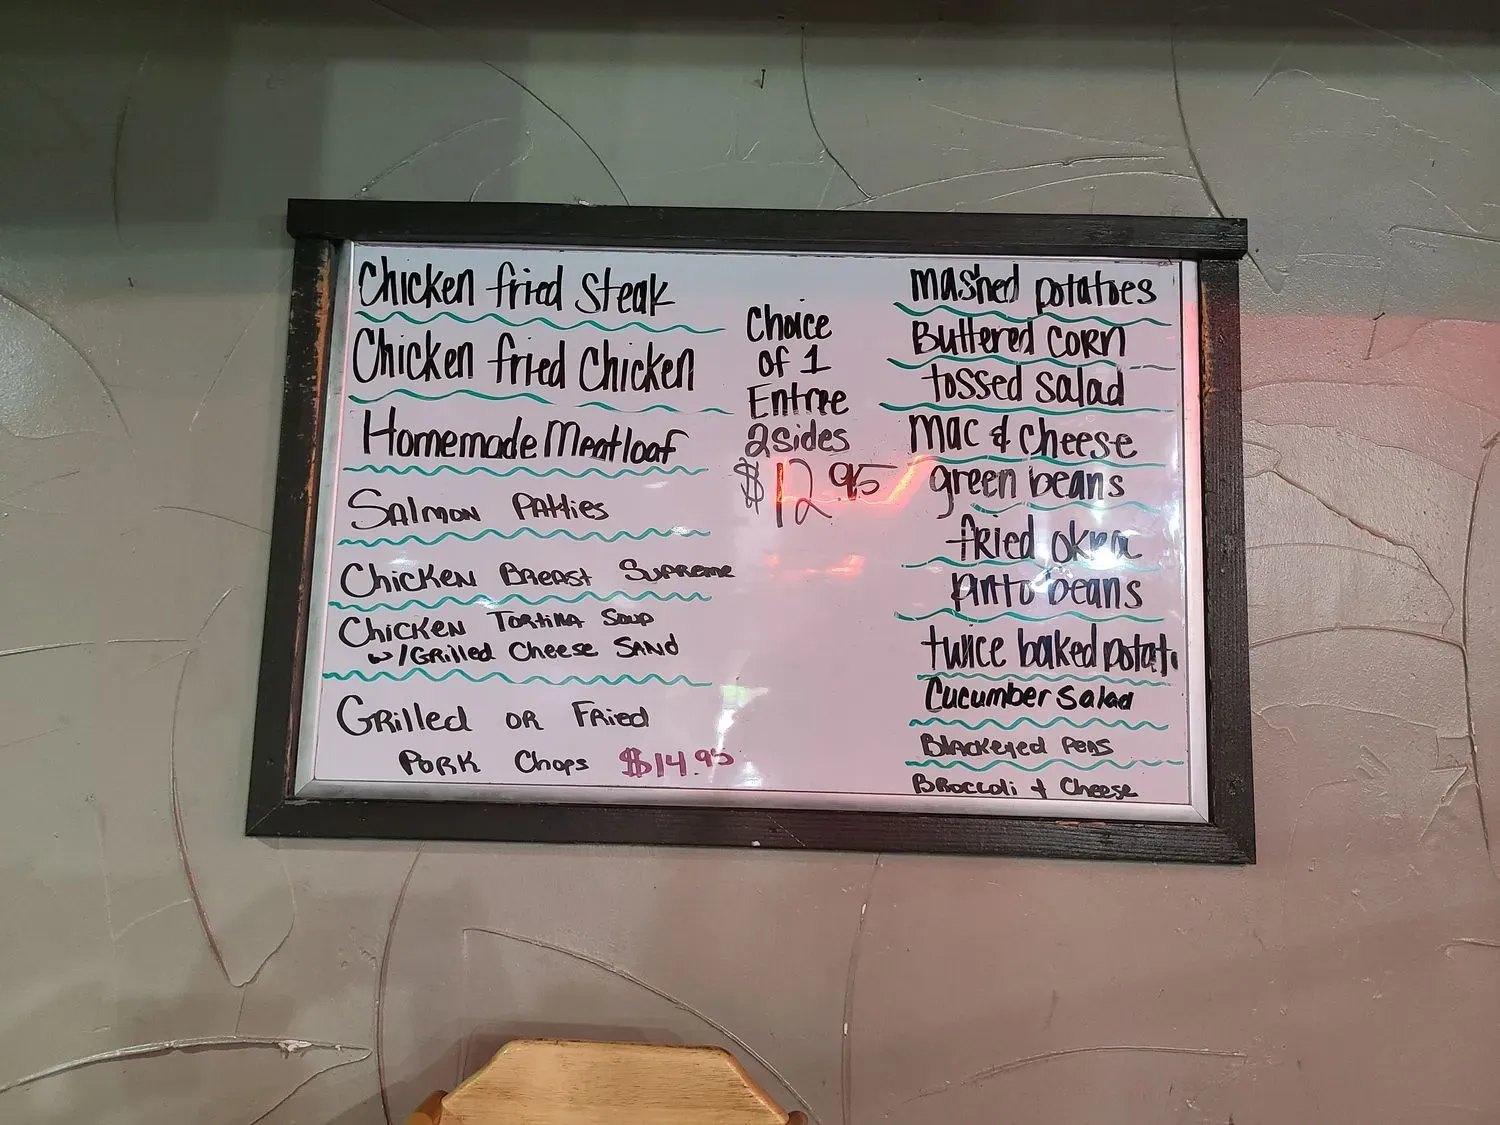 Chicken fried Steak
Chicken fried Chicken
Homemade Meatloaf
Salmon Patties
Chicken Breast Supreme
Chicken Tortilla Soup
w/Grilled Cheese Sand
Grilled or Fried
Pork Chops $14.95
Choice
of 1
Entree
2 sides
$12.95
mashed potatoes
Buttered corn
tossed salad
Mac & cheese
green beans
fried okra
pinto beans
twice baked potato
Cucumber salad
Blackeyed peas
Broccoli + Cheese